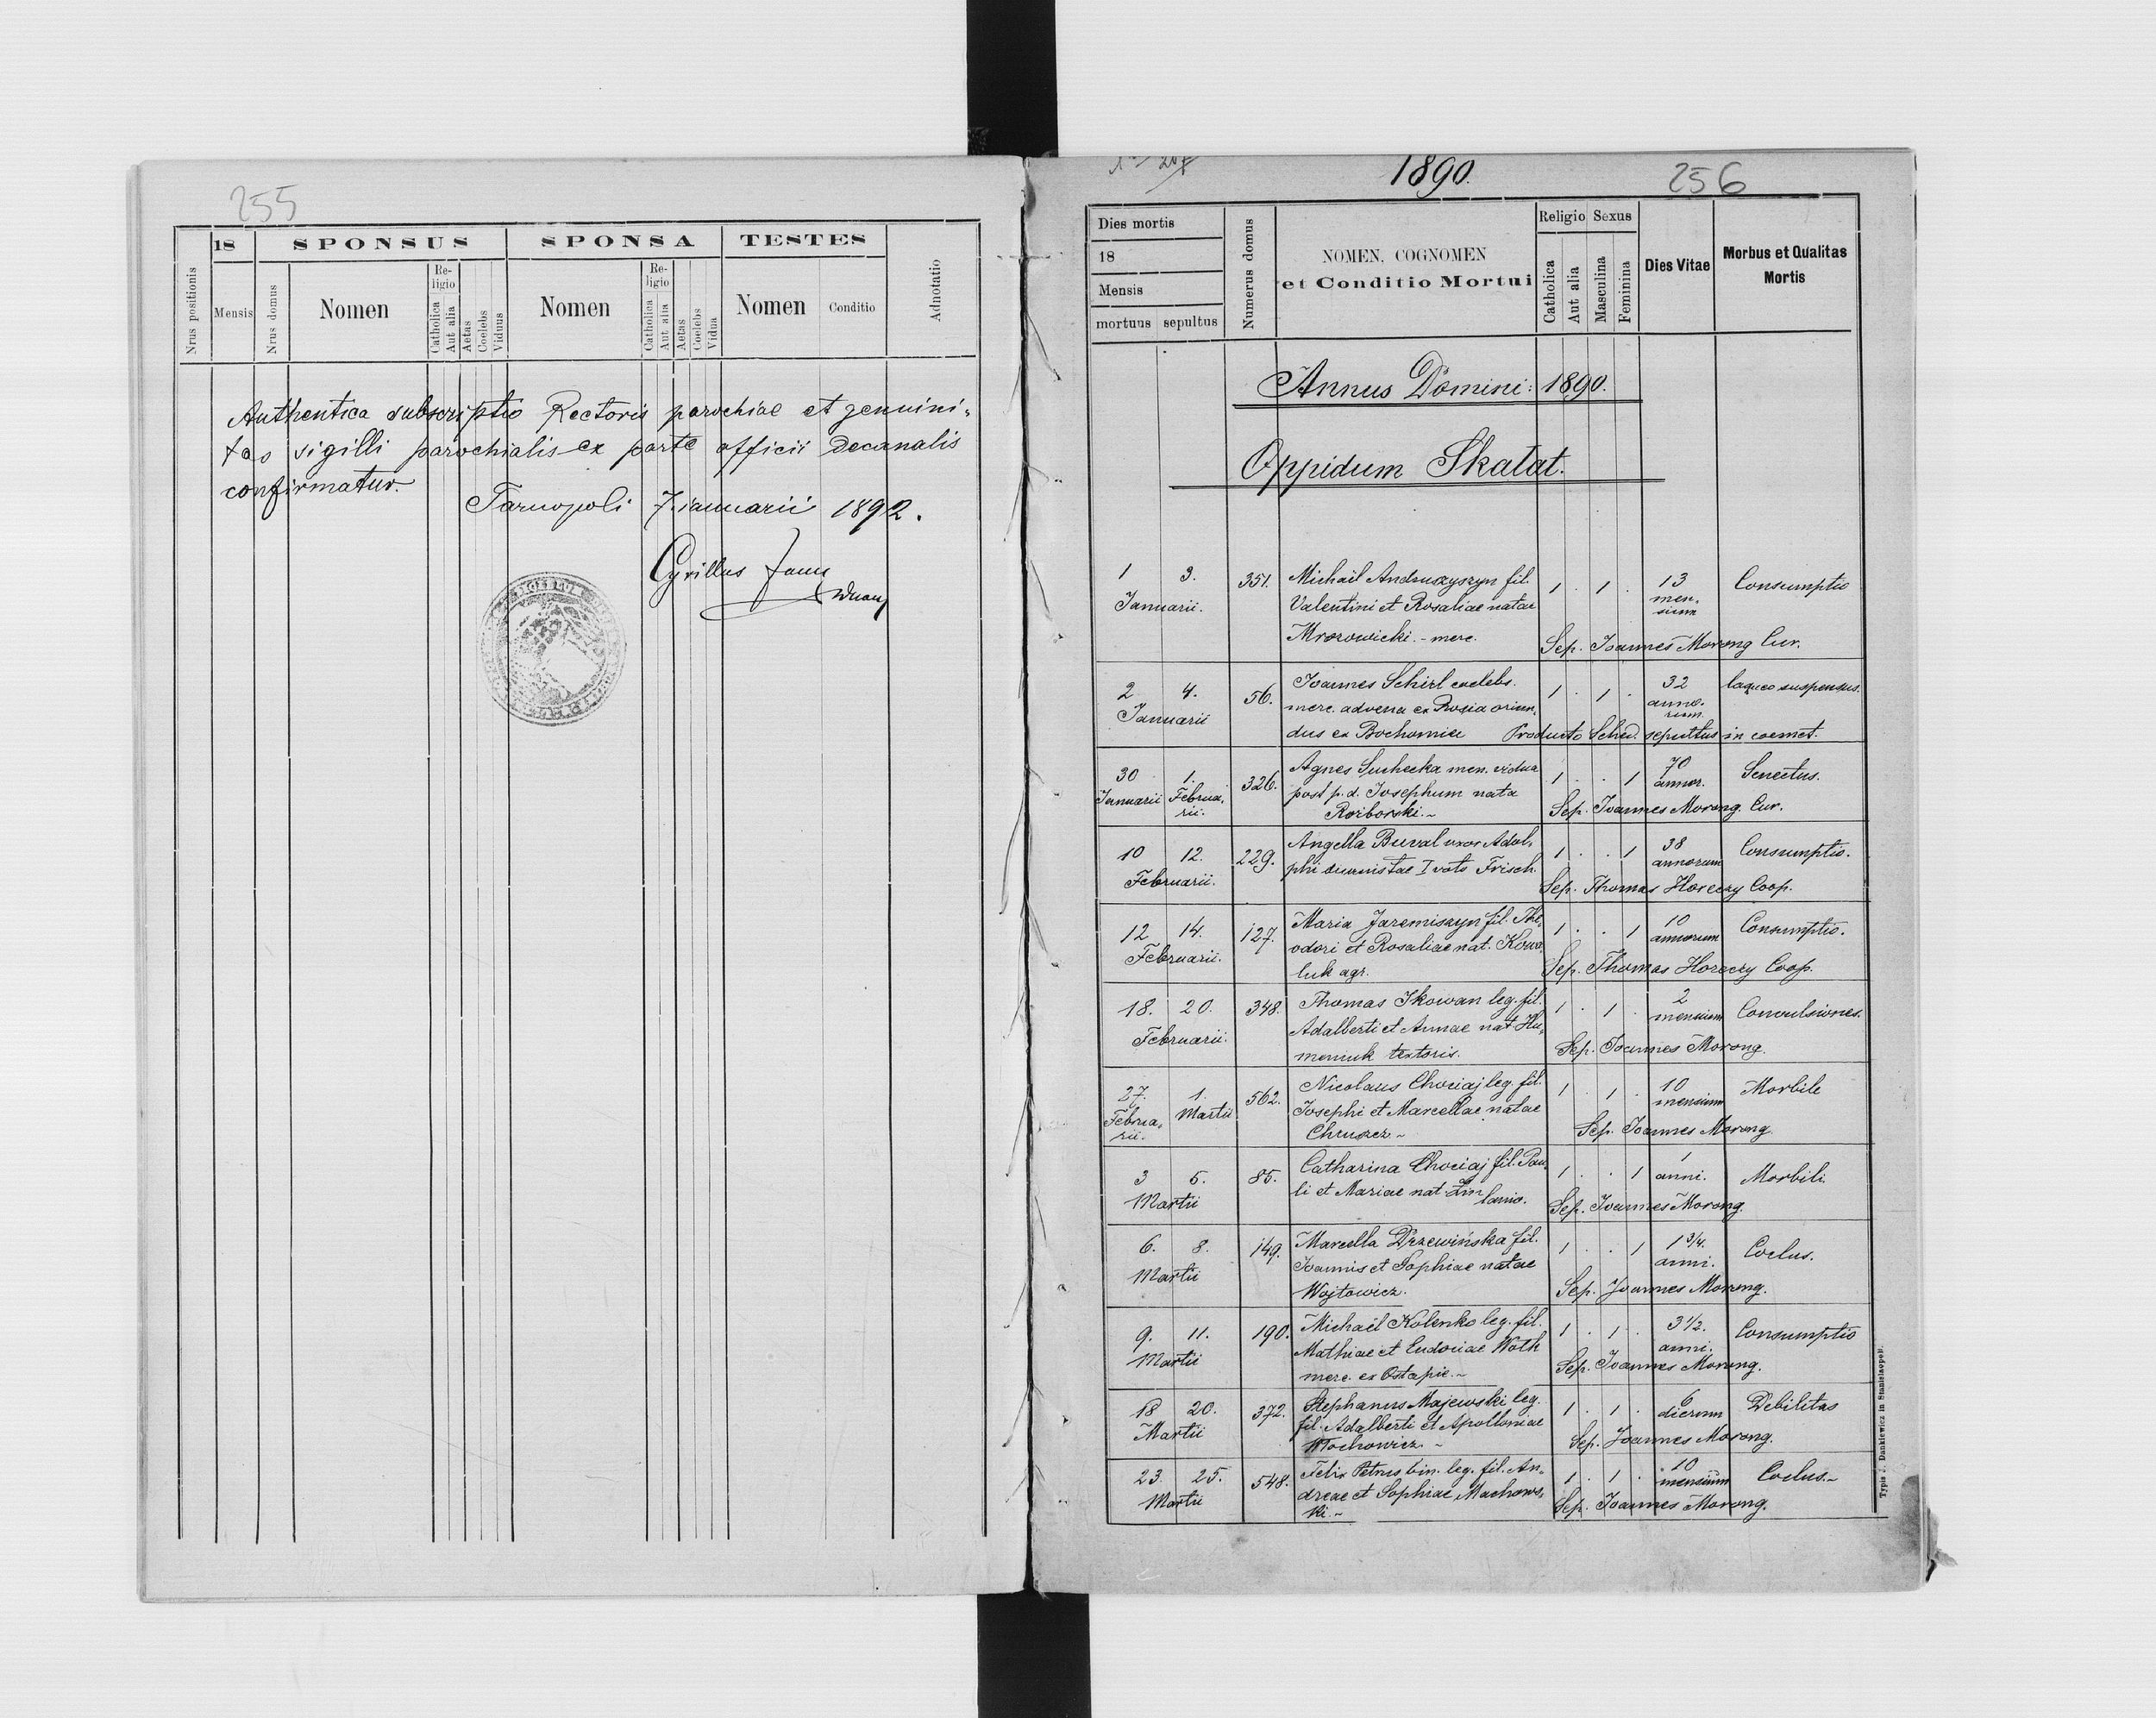 255
18
SPONSUS
SPONSA
TESTES
Nrus positionis
Mensis
Nrus domus
Nomen
Re-
ligio
Catholica
Aut alia
Aetas
Coelebs
Viduus
Nomen
Re-
ligio
Catholica
Aut alia
Aetas
Coelebs
Vidua
Nomen
Conditio
Adnotatio
Authentica subscriptio Rectoris parochiae et genuini-
tas sigilli parochialis ex parte officii Decanalis
confirmatur.
Tarnopoli 7. ianuarii 1892.
Cyrillus
1890.
256
Dies mortis
18
Mensis
mortuus sepultus
Numerus domus
NOMEN, COGNOMEN
et Conditio Mortui
Religio Sexus
Catholica
Aut alia
Masculina
Feminina
Dies Vitae
Morbus et Qualitas
Mortis
Annus Domini: 1890.
Oppidum Skałat.
1 3. 351. Michaël Andruszyszyn fil. 1 . 1 . 13 Consumptio
Januarii. Valentini et Rosaliae natae men-
sium
Mrozowicki. - merc. Sep. Joannes Morong Cur.
2 4. 56. Joannes Schirl caelebs. 1 . 1 . 32 laqueo suspensus.
Januarii merc. advena ex Rosia oriun- anno-
rum
dus ex Bochomice Producto Sched. sepultus in coemet.
30 1. 326. Agnes Suchecka men. vidua 1 . . 1 70 Senectus.
Januarii Februa- post p. d. Josephum nata annor.
rii. Rozborski. - Sep. Joannes Morong. Cur.
10 12. 229. Angella Buval uxor Adol- 1 . . 1 38 Consumptio.
Februarii. phi I voto Frisch. annorum
Sep. Thomas Horeczy Coop.
12 14. 127. Maria Jaremiszyn fil. The- 1 . . 1 10 Consumptio.
Februarii. odori et Rosaliae nat. Kowa- annorum
luk agr. Sep. Thomas Horeczy Coop.
18. 20. 348. Thomas Skowan leg. fil. 1 . 1 . 2 Convulsiones.
Februarii. Adalberti et Annae nat. Hu- mensium
meniuk textoris. Sep. Joannes Morong.
27. 1. 562. Nicolaus Chociaj leg. fil. 1 . 1 . 10 Morbile
Februa- Martii Josephi et Marcellae natae mensium
rii. Chruszcz - Sep. Joannes Morong.
3 5. 85. Catharina Chociaj fil. Pau- 1 . . 1 1 Morbili
Martii li et Mariae nat. anni.
Sep. Joannes Morong.
6. 8. 149. Marcella Drzewińska fil. 1 . . 1 1 3/4. Coclus.
Martii Joannis et Sophiae natae anni.
Wojtowicz. Sep. Joannes Morong.
9. 11. 190. Michaël Kolenko leg. fil. 1 . 1 . 3 1/2. Consumptio
Martii Mathiae et Eudociae Woth anni.
merc. ex Ostapie. - Sep. Joannes Morong.
18 20. 372. Stephanus Majewski leg. 1 . 1 . 6 Debilitas
Martii fil. Adalberti et Apolloniae dierum
Wochowicz - Sep. Joannes Morong.
23. 25. 548. Felix Petrus bin. leg. fil. An- 1 . 1 . 10 Coclus. -
Martii dreae et Sophiae Machows- mensium
ki. - Sep. Joannes Morong.
Typis J. Dankiewicz in Stanislaopoli.